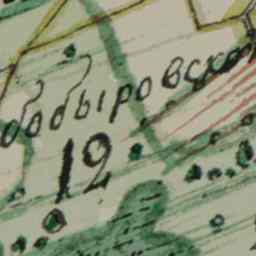 бобыровской
12